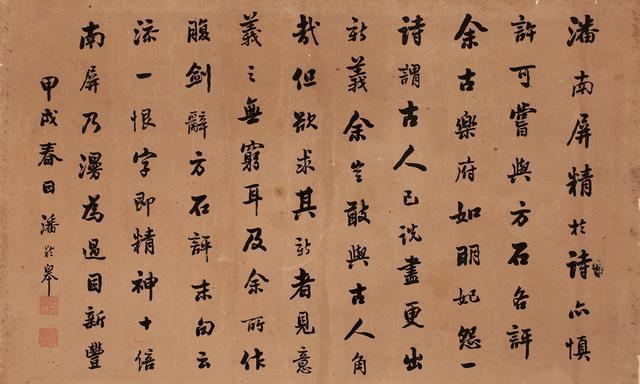 潘南屏精於詩亦慎
許可嘗與方石各評
余古樂府如明妃怨一
詩謂古人已說盡更出
新義余豈敢與古人角
哉但欲求其新者見意
義之無窮耳及余所作
腹劍辭方石評末句云
添一恨字即精神十倍
南屏乃漫為過目新豐
甲戌春日潘齡皋